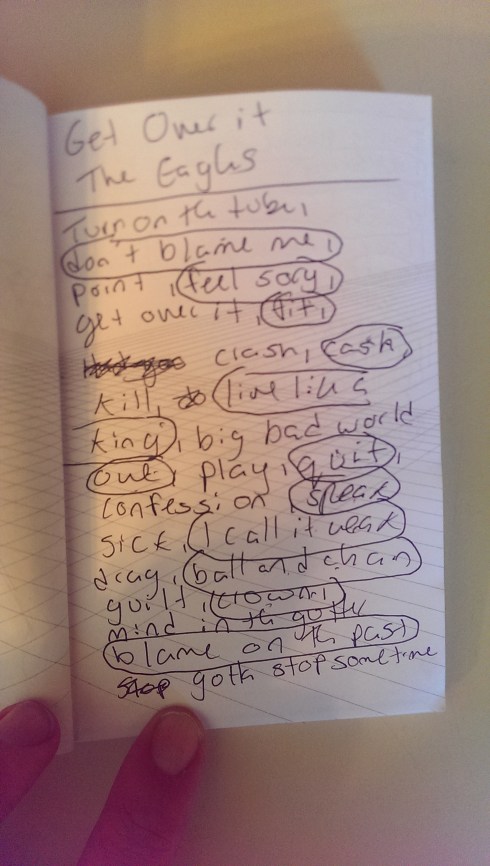 Get Over it
The Eagles
Turn on the tube,
don't blame me,
point, feel sory,
get over it, fit,
clash, cash,
kill, live like a
king, big bad world
owe, play, quit,
confession, speak
sick, I call it weak
drag, ball and chain
guilt, crown,
mind in the gotter
blame on the past
Stop gotta stop sometime